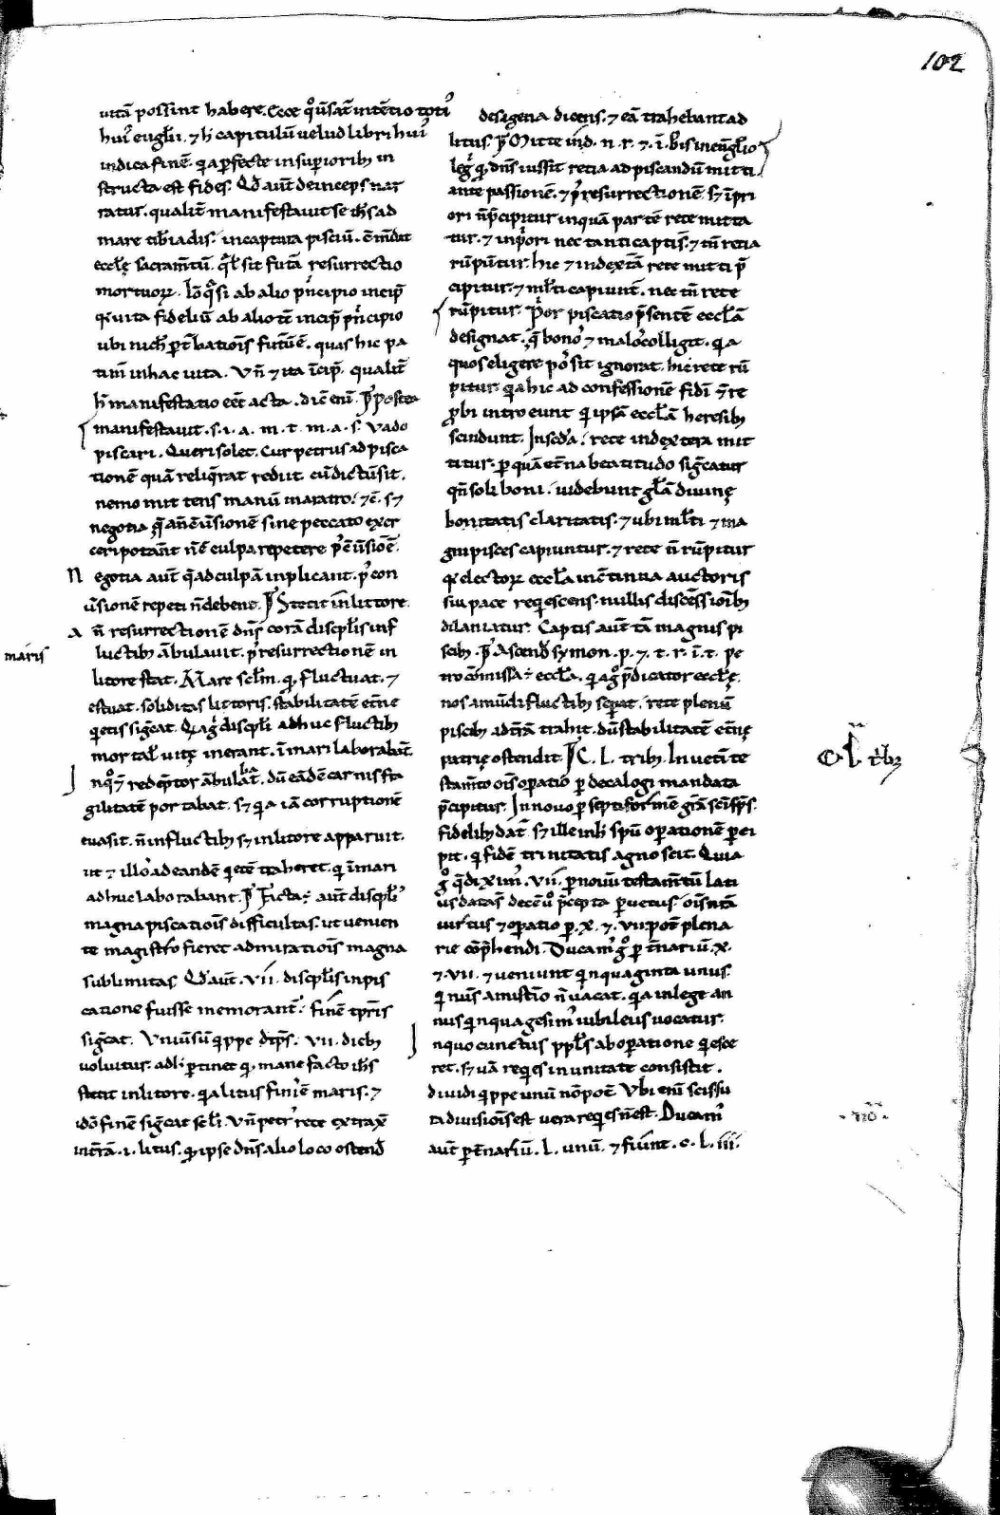 102
uitā possint habere. Ecce q̊ uersat̄ intētio toti᾽
hui᾽ euḡlii. ⁊ h̄ capitulū uelud libri hui᾽
indica finē. q̄a perfecte in superiorib; in
structa est fides. Qđ aut̄ deinceps nar
ratur. qualit̄ manifestauit se ih̄s ad
mare tib̄iadis. in captura pisciū. cōm̄dat
ecclę sacram̄tū. q̄l sit futā resurrectio
mortuoꝝ.
q̄ uita fideliū ab alio
ubi nich̄ quas hic pa
tim̄ in hac uita. Vn̄ ⁊ ita īcip̄. qualit̄
h̄ manifestatio eēt acta. dic̄ enī. Postea
manifestauit. s. i. a. m. t. m. a. s. Vado
piscari. Queri solet. Cur petrus ad pisca
tionē quā reliq̄rat rediit. cū dictū sit.
nemo mittens manū in aratro. ⁊c̄. s;
negotia q̄ an̄ cōuersionē sine peccato exer
ceri potant n̄ ē culpa repetere p᾽ cōuersionē.
N egotia aut̄ q̄ ad culpā inplicant. p᾽ con
u̅sionē repeti n̄ debent. Stetit in littore.
a n̄ resurrectionē dn̄s corā discipl̄is in f
maris
luctib; ābulauit. p᾽ resurrectionē in
litore stat. Mare sclm̄. q̄ fluctuat. ⁊
estuat. soliditas littoris. stabilitatē et̄ne
q̄etis siḡcat. Q̄a g᾽ discipl̄i adhuc fluctib;
mortal̄ uitę inerant. ī mari laborabāt.
I nq̊ ⁊ redēptor ābulabat. dū eādē carnis fra
gilitatē portabat. s; q̄a iā corruptionē
euasit. n̄ in fluctib; s; in litore apparuit.
ut ⁊ illos ad eandē q̄etē traheret. q̄ ī mari
adhuc laborabant. Facta ē aut̄ discipl̄is
magna piscationis difficultas. ut uenien
te magistro fieret admirationis magna
sublimitas. Qđ aut̄. VII. discipl̄is in pis
catione fuisse memorant̄. finē tp̄ris
siḡcat. Vniūsū q̄ppe tp̄s. VII. dieb;
uoluitur. ad h̄ pertinet q̄, mane facto ih̄s
stetit in litore. q̄a litus finiē maris. ⁊
idō finē siḡcat scl̄i. Vn̄ petr᾽ rete extrax̄
in t̄rā. i. litus. q̄ ipse dn̄s alio loco ostend̄
de sagena dicens. ⁊ eā trahebant ad
litus. Mitte ī nd̄. n. r. ⁊. ī. bis in eūg̅lio
leg̅r q̄, dn̄s iussit retia ad piscandū mitti.
ante passionē. ⁊ p᾽ resurrectionē. s; ī pri
ori n̄ p̄cipitur in quā partē rete mitta
tur. ⁊ in p̄ori nec tanti captis. ⁊ tn̄ retia
rūpūtur. hic ⁊ in dexterā rete mitti p̄
cipitur. ⁊ ml̄ti capiunt̄. nec tn̄ rete
rūpitur. P̄or piscatio p̄sentē eccl̄ā
designat. q̄ bonos ⁊ malos colligit. q̄a
quos eligere possit ignorat. hic rete rū
pitur. q̄a hic ad confessionē fidei ⁊ re
probi introeunt q̄ ipsā eccl̄ā heresib;
scindunt. In sc̄da. rete in dextera mit
titur. per quā et̄na beatitudo sig̅catur
qn̄ soli boni. uidebunt gl̄ā diuinę
bonitatis claritatis. ⁊ ubi ml̄ti ⁊ ma
gni pisces capiuntur. ⁊ rete n̄ rūpitur
q̄a electoꝝ eccl̄a in continua auctoris
sui pace req̄escens. nullis discessionib;
dilaniatur. Captis aut̄ tā magnis pi
scib;. Ascend̄ symon. p. ⁊. t. r. ī. t. Pe
tro cōmissa ē eccl̄a. q̄a g᾽ p̄dicator eccl̄ę.
nos a mūdi fluctib; sep̄at. rete plenū
piscib; ad t̄rā trahit. dū stabilitatē et̄nę
patrię ostendit. C. L. trib;. In ueti te
C̄L t̄b;
stam̄to ois opatio p̄ decalogi mandata
p̄cipitur. In nouo per septiformē grā sc̄i sp̄s.
fidelib; dat̄. s; ille in h̄ spū operationē per ci
pit. q̄ fidē trinitatis agnoscit. Quia
g̊ q̄ diximus. VII. per nouū testam̄tū lati
us datas decē uero p̄cepta per uetus. ois nr̄a
uirtus ⁊ operatio per. X. ⁊. VII. pot plena
rie cōprehendi. Ducam᾽ g̊ per t̄narium. X.
⁊. VII. ⁊ ueniunt quinquaginta unus.
q̄ nums a misterio n̄ uacat. q̄a in lege an
nus q̄nquagesim᾽ iubileus uocatur.
I n quo cunctus ppl̄s ab operatione q̄esce
ret. s; uera req̄es in unitate consistit.
diuidi q̄ppe unū non pot̄. Vbi enī scissu
ra diuisiōis est uera req̄es n̄ est. Ducam᾽
aut̄ per t̄nariū. L. unū. ⁊ fiunt. C. L. III.
.no.